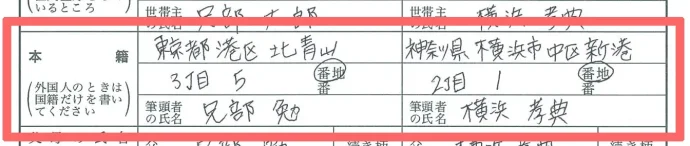 いるところ 世帯主の氏名 兄部 太郎 世帯主の氏名 横浜 孝典
本籍 東京都港区北青山 神奈川県横浜市中区新港
(外国人のときは国籍だけを書いてください) 3丁目 5 番地 番 2丁目 1 番地 番
筆頭者の氏名 兄部 勉 筆頭者の氏名 横浜 孝典